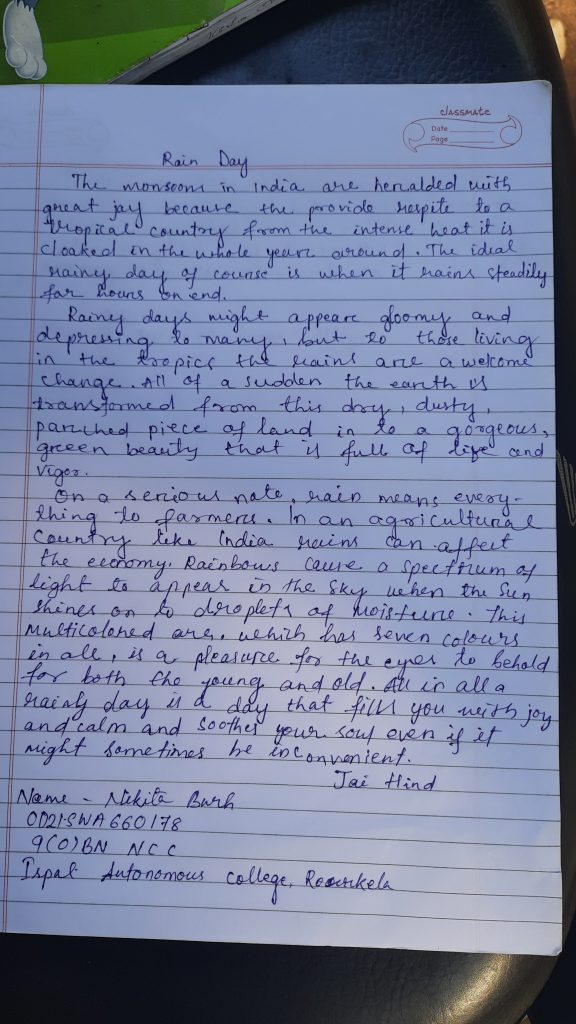 classmate
Date
Page
Rain Day
The monsoons in India are heralded with
great joy because the provide respite to a
tropical country from the intense heat it is
cloaked in the whole year around. The ideal
rainy day of course is when it rains steadily
for hours on end.
Rainy days might appear gloomy and
depressing to many, but to those living
in the tropics the rains are a welcome
change. All of a sudden the earth is
transformed from this dry, dusty,
parched piece of land in to a gorgeous,
green beauty that is full of life and
vigor.
On a serious note, rain means every-
thing to farmers. In an agricultural
Country like India rains can affect
the economy. Rainbows cause a spectrum of
light to appear in the sky when the Sun
shines on to droplets of moisture. This
multicolored arc, which has seven colours
in all, is a pleasure for the eyes to behold
for both the young and old. All in all a
rainy day is a day that fills you with joy
and calm and soothes your soul even if it
might sometimes be inconvenient.
Jai Hind
Name - Nikita Burh
OD21SWA660178
9(O)BN NCC
Ispat Autonomous college, Rourkela